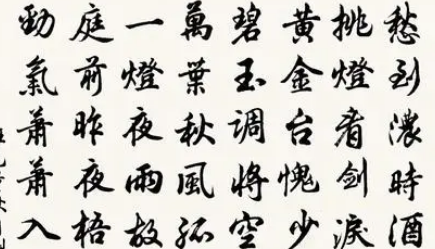 愁到濃時酒
挑燈看劍淚
黄金台愧少
碧玉调將空
萬葉秋風孤
一燈夜雨故
庭前昨夜梧
勁氣蕭蕭入